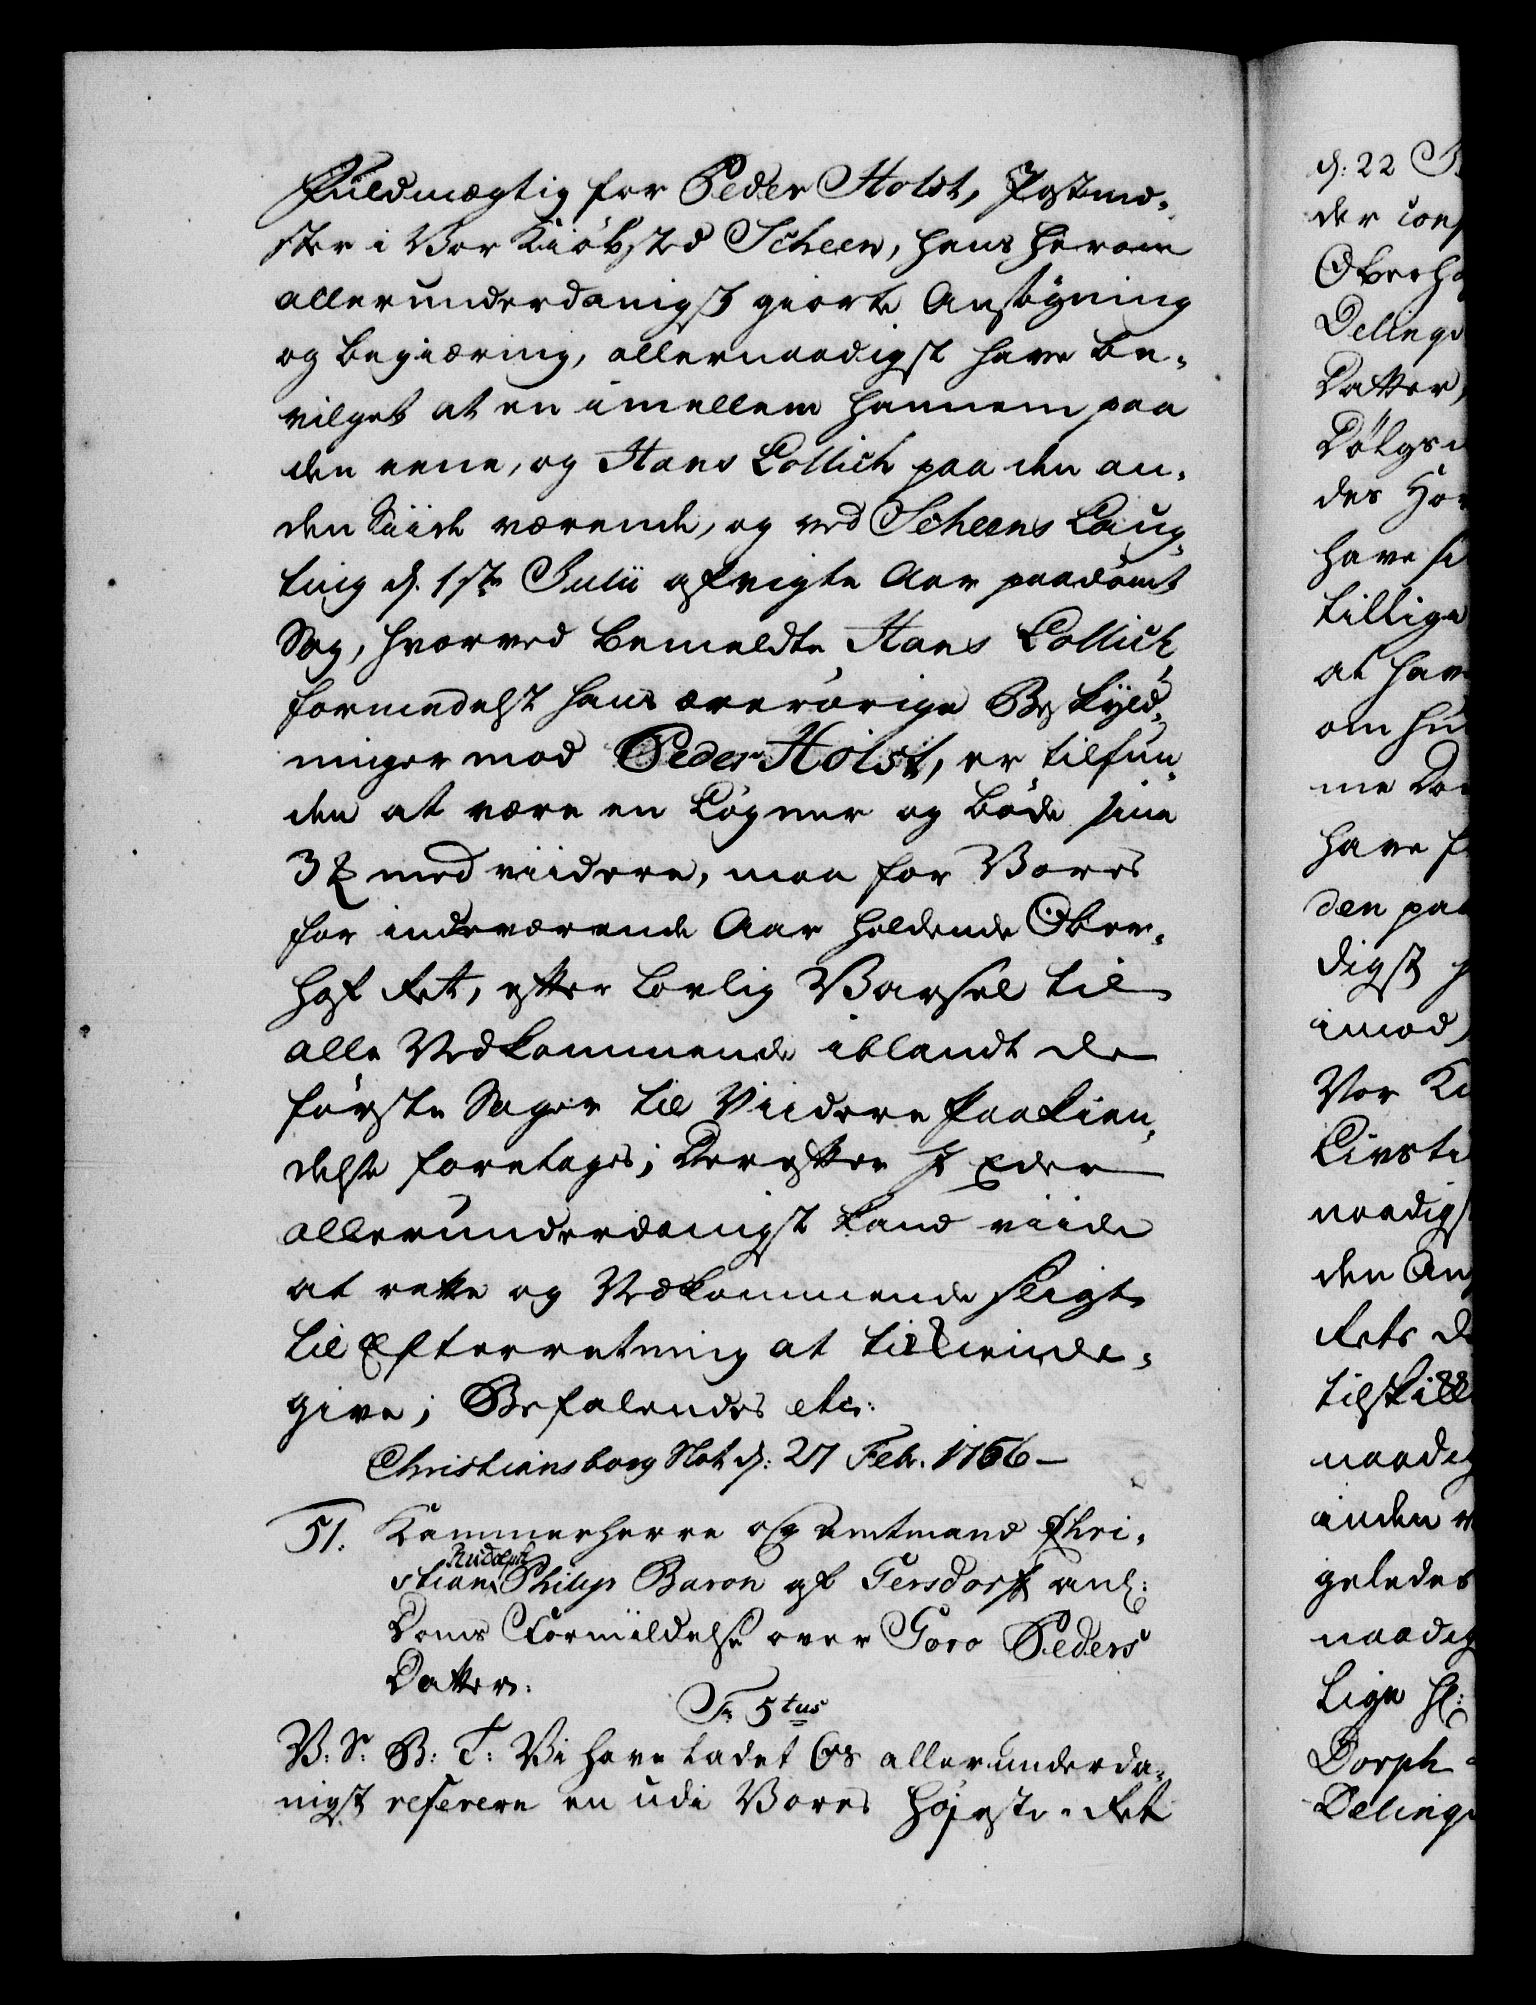 Fuldmægtig for Peder Holst, Postme-
ster i Vor Kiöbsted Scheen, hans herom
allerunderdanigst giorte Ansögning
og begiæring, allernaadigst have be-
vilget at en imellem hannem paa
den eene, og Hans Collich paa den an-
den Siide værende, og ved Scheens Laug-
ting d. 1ste Julii afvigte Aar paadömt
Sag, hvorved bemeldte Hans Collich
formedelst hans ærerörige Beskyld-
ninger mod Peder Holst, er tilfun-
den at være en Lögner og böde sine
3 ℳ med viidere, maa for Vores
for indeværende Aar holdende Ober-
hof Ret, efter lovlig Varsel til
alle Vedkommende iblandt de
förste Sager til Viidere Paakien-
delse foretages; Derefter I Eder
allerunderdanigst kand viide
at rette og Vedkommende sligt
til Efterretning at tilkiende-
give; Befalendes etc:
Christiansborg Slot d: 27 Feb. 1766 -
51. Kammerherre og Amtmand Chri-
stian Rudolph Philip Baron af Gersdorff anl:
Doms Formildelse over Goro Peders
Datter.
Fr 5tus
V: S: B: T: Vi have ladet Os allerunderda-
nigst referere en udi Vores Höjeste-Ret
d: 22
der
Oberho
Delinqv
Datter,
Dölgs
des
have
tillige
at hav
om
me
have
den paa
digst
imod,
Vor
naadigst
den
Rets
tilskikke
naadig
inden
geledes
naadig
lige
Dorph
Delinqv